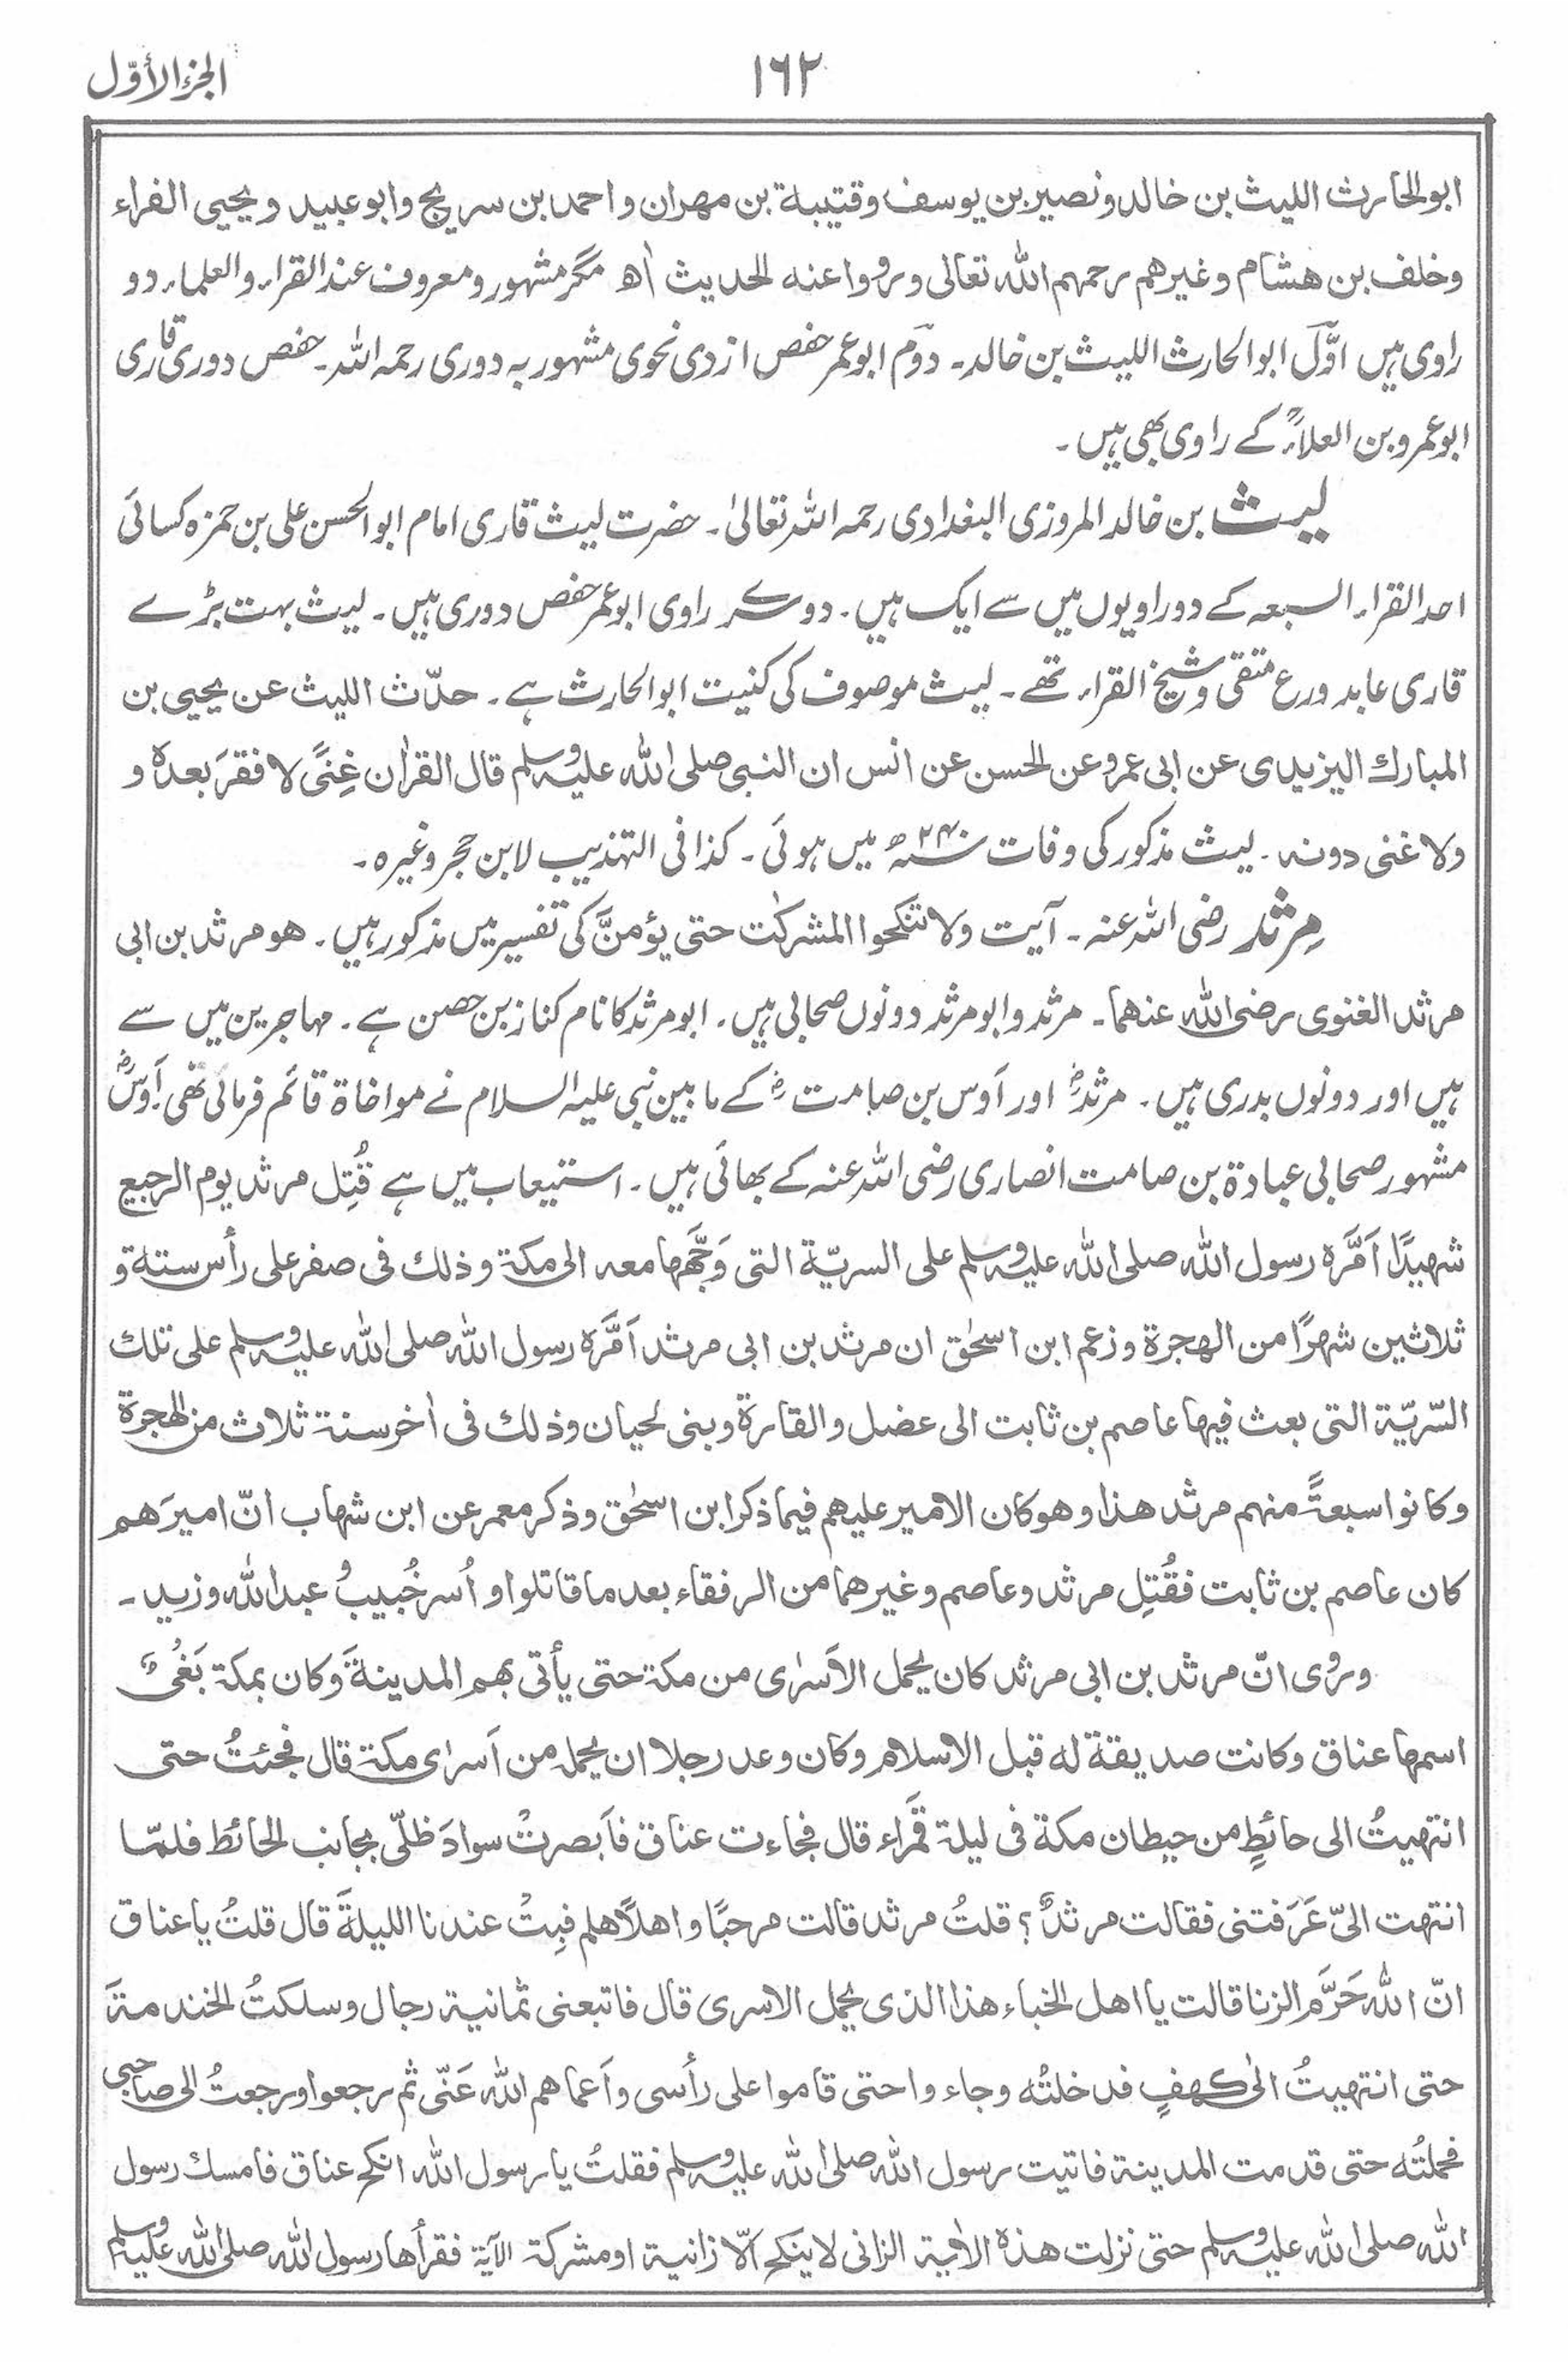 الجزء الأوّل
١٦٢
ابوالحارث الليث بن خالد ونصير بن يوسف وقتيبة بن مهران و احمد بن سريج وابوعبيد ويحيى الفراء
وخلف بن هشام وغيرهم رحمهم الله تعالى وروواعنه الحديث اھ مگر مشہور و معروف عند القراء والعلماء دو
راوی ہیں اوّل ابوالحارث اللیث بن خالد۔ دوم ابوعمر حفص ازدی نحوی مشہور بہ دوری رحمہ اللہ۔ حفص دوری قاری
ابوعمرو بن العلاءؒ کے راوی بھی ہیں۔
لیث بن خالد المروزی البغدادی رحمہ اللہ تعالیٰ۔ حضرت لیث قاری امام ابوالحسن علی بن حمزہ کسائی
احد القراء السبعہ کے دو راویوں میں سے ایک ہیں۔ دوسرے راوی ابوعمر حفص دوری ہیں۔ لیث بہت بڑے
قاری عابد ورع متقی وشیخ القراء تھے۔ لیث موصوف کی کنیت ابوالحارث ہے۔ حدّث الليث عن يحيى بن
المبارك اليزيدى عن ابى عمرو عن الحسن عن انس ان النبى صلى الله عليه وسلم قال القران غِنًى لا فقرَ بعده و
ولا غنى دونه۔ لیث مذکور کی وفات ۲۴۰ھ میں ہوئی۔ کذا فی التہذیب لابن حجر وغیرہ۔
مرثد رضی اللہ عنہ۔ آیت ولا تنکحوا المشرکٰت حتی یؤمنَّ کی تفسیر میں مذکور ہیں۔ هو مرثد بن ابى
مرثد الغنوى رضى الله عنهما۔ مرثد و ابومرثد دونوں صحابی ہیں۔ ابومرثد کا نام کناز بن حصن ہے۔ مہاجرین میں سے
ہیں اور دونوں بدری ہیں۔ مرثدؓ اور اَوس بن صامتؓ کے مابین نبی علیہ السلام نے مواخاۃ قائم فرمائی تھی۔ اَوسؓ
مشہور صحابی عبادۃ بن صامت انصاری رضی اللہ عنہ کے بھائی ہیں۔ استیعاب میں ہے قُتِل مرثد يوم الرجيع
شهيدًا اَمَّره رسول الله صلى الله عليه وسلم على السريّة التى وَجَّهها معه الى مكة وذلك فى صفر على رأس ستة و
ثلاثين شهرًا من الهجرة وزعم ابن اسحٰق ان مرثد بن ابى مرثد اَمَّره رسول الله صلى الله عليه وسلم على تلك
السّريّة التى بعث فيها عاصم بن ثابت الى عضل والقارة وبنى لحيان وذلك فى اٰخر سنة ثلاث من الهجرة
وكانوا سبعةً منهم مرثد هذا وهو كان الامير عليهم فيما ذكر ابن اسحٰق وذكر معمر عن ابن شهاب انّ اميرَهم
كان عاصم بن ثابت فقُتِل مرثد وعاصم وغيرهما من الرفقاء بعد ما قاتلوا و اُسر خُبيبُ و عبدالله وزيد۔
ورُوى انّ مرثد بن ابى مرثد كان يحمل الاَسرٰى من مكة حتى يأتى بهم المدينةَ وكان بمكة بَغىٌّ
اسمها عناق وكانت صديقة له قبل الاسلام وكان وعد رجلا ان يحمله من اَسرٰى مكة قال فجئتُ حتى
انتهيتُ الى حائطٍ من حيطان مكة فى ليلة قَمراء قال فجاءت عناق فاَبصرتْ سوادَ ظلّى بجانب الحائط فلمّا
انتهت الىّ عَرَفتنى فقالت مرثدٌ؟ قلتُ مرثد قالت مرحبًا و اهلًا هلم فبِتْ عندنا الليلةَ قال قلتُ يا عناق
انّ الله حَرَّم الزنا قالت يا اهل الخباء هذا الذى يحمل الاسرى قال فاتبعنى ثمانية رجال وسلكتُ الخندمةَ
حتى انتهيتُ الىٰ كهفٍ فدخلتُه وجاءوا حتى قاموا على رأسى واَعماهم الله عَنّى ثم رجعوا ورجعتُ الى صاحبى
فحملتُه حتى قدمت المدينة فاتيت رسول الله صلى الله عليه وسلم فقلتُ يا رسول الله انكح عناق فامسك رسول
الله صلى الله عليه وسلم حتى نزلت هذه الاٰية الزانى لا ينكح الّا زانية او مشركة الآية فقرأها رسول الله صلى الله عليه وسلم